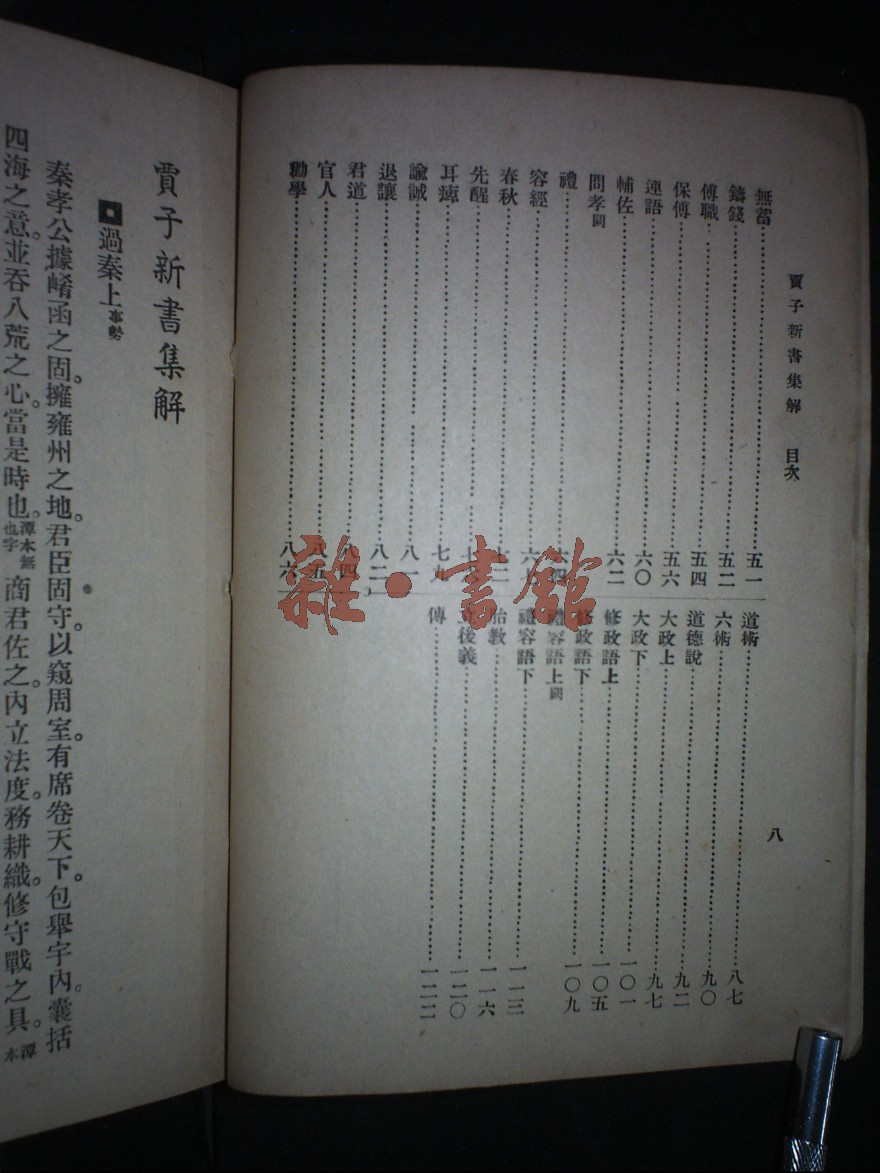 賈子新書集解 目次
八
無蓄 五一
鑄錢 五二
傅職 五四
保傅 五六
連語 六〇
輔佐 六二
問孝闕
禮 六四
容經
春秋
先醒
耳痺 七九
諭誠 八一
退讓 八二
君道 八四
官人 八五
勸學 八六
道術 八七
六術 九〇
道德說 九二
大政上 九七
大政下 一〇一
修政語上 一〇五
修政語下 一〇九
禮容語上闕
禮容語下 一一三
胎教 一一六
立後義 一二〇
傳 一二二
雜·書館
賈子新書集解
過秦上事勢
秦孝公據崤函之固。擁雍州之地。君臣固守。以窺周室。有席卷天下。包舉宇內。囊括
四海之意。並吞八荒之心。當是時也。潭本無也字商君佐之。內立法度。務耕織。修守戰之具。潭本